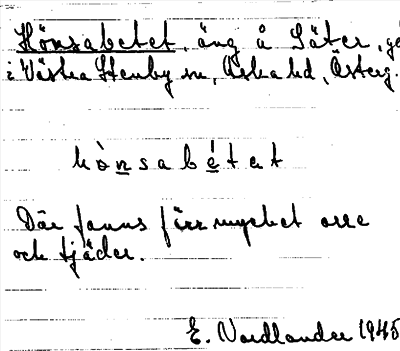 Hönsabetet, äng å Säter, gå
i Västra Stenby sn, Aska hd, Österg.
hò̱nsabé̱tat
Där fanns förr mycket orre
och tjäder.
E. Nordlander 1945